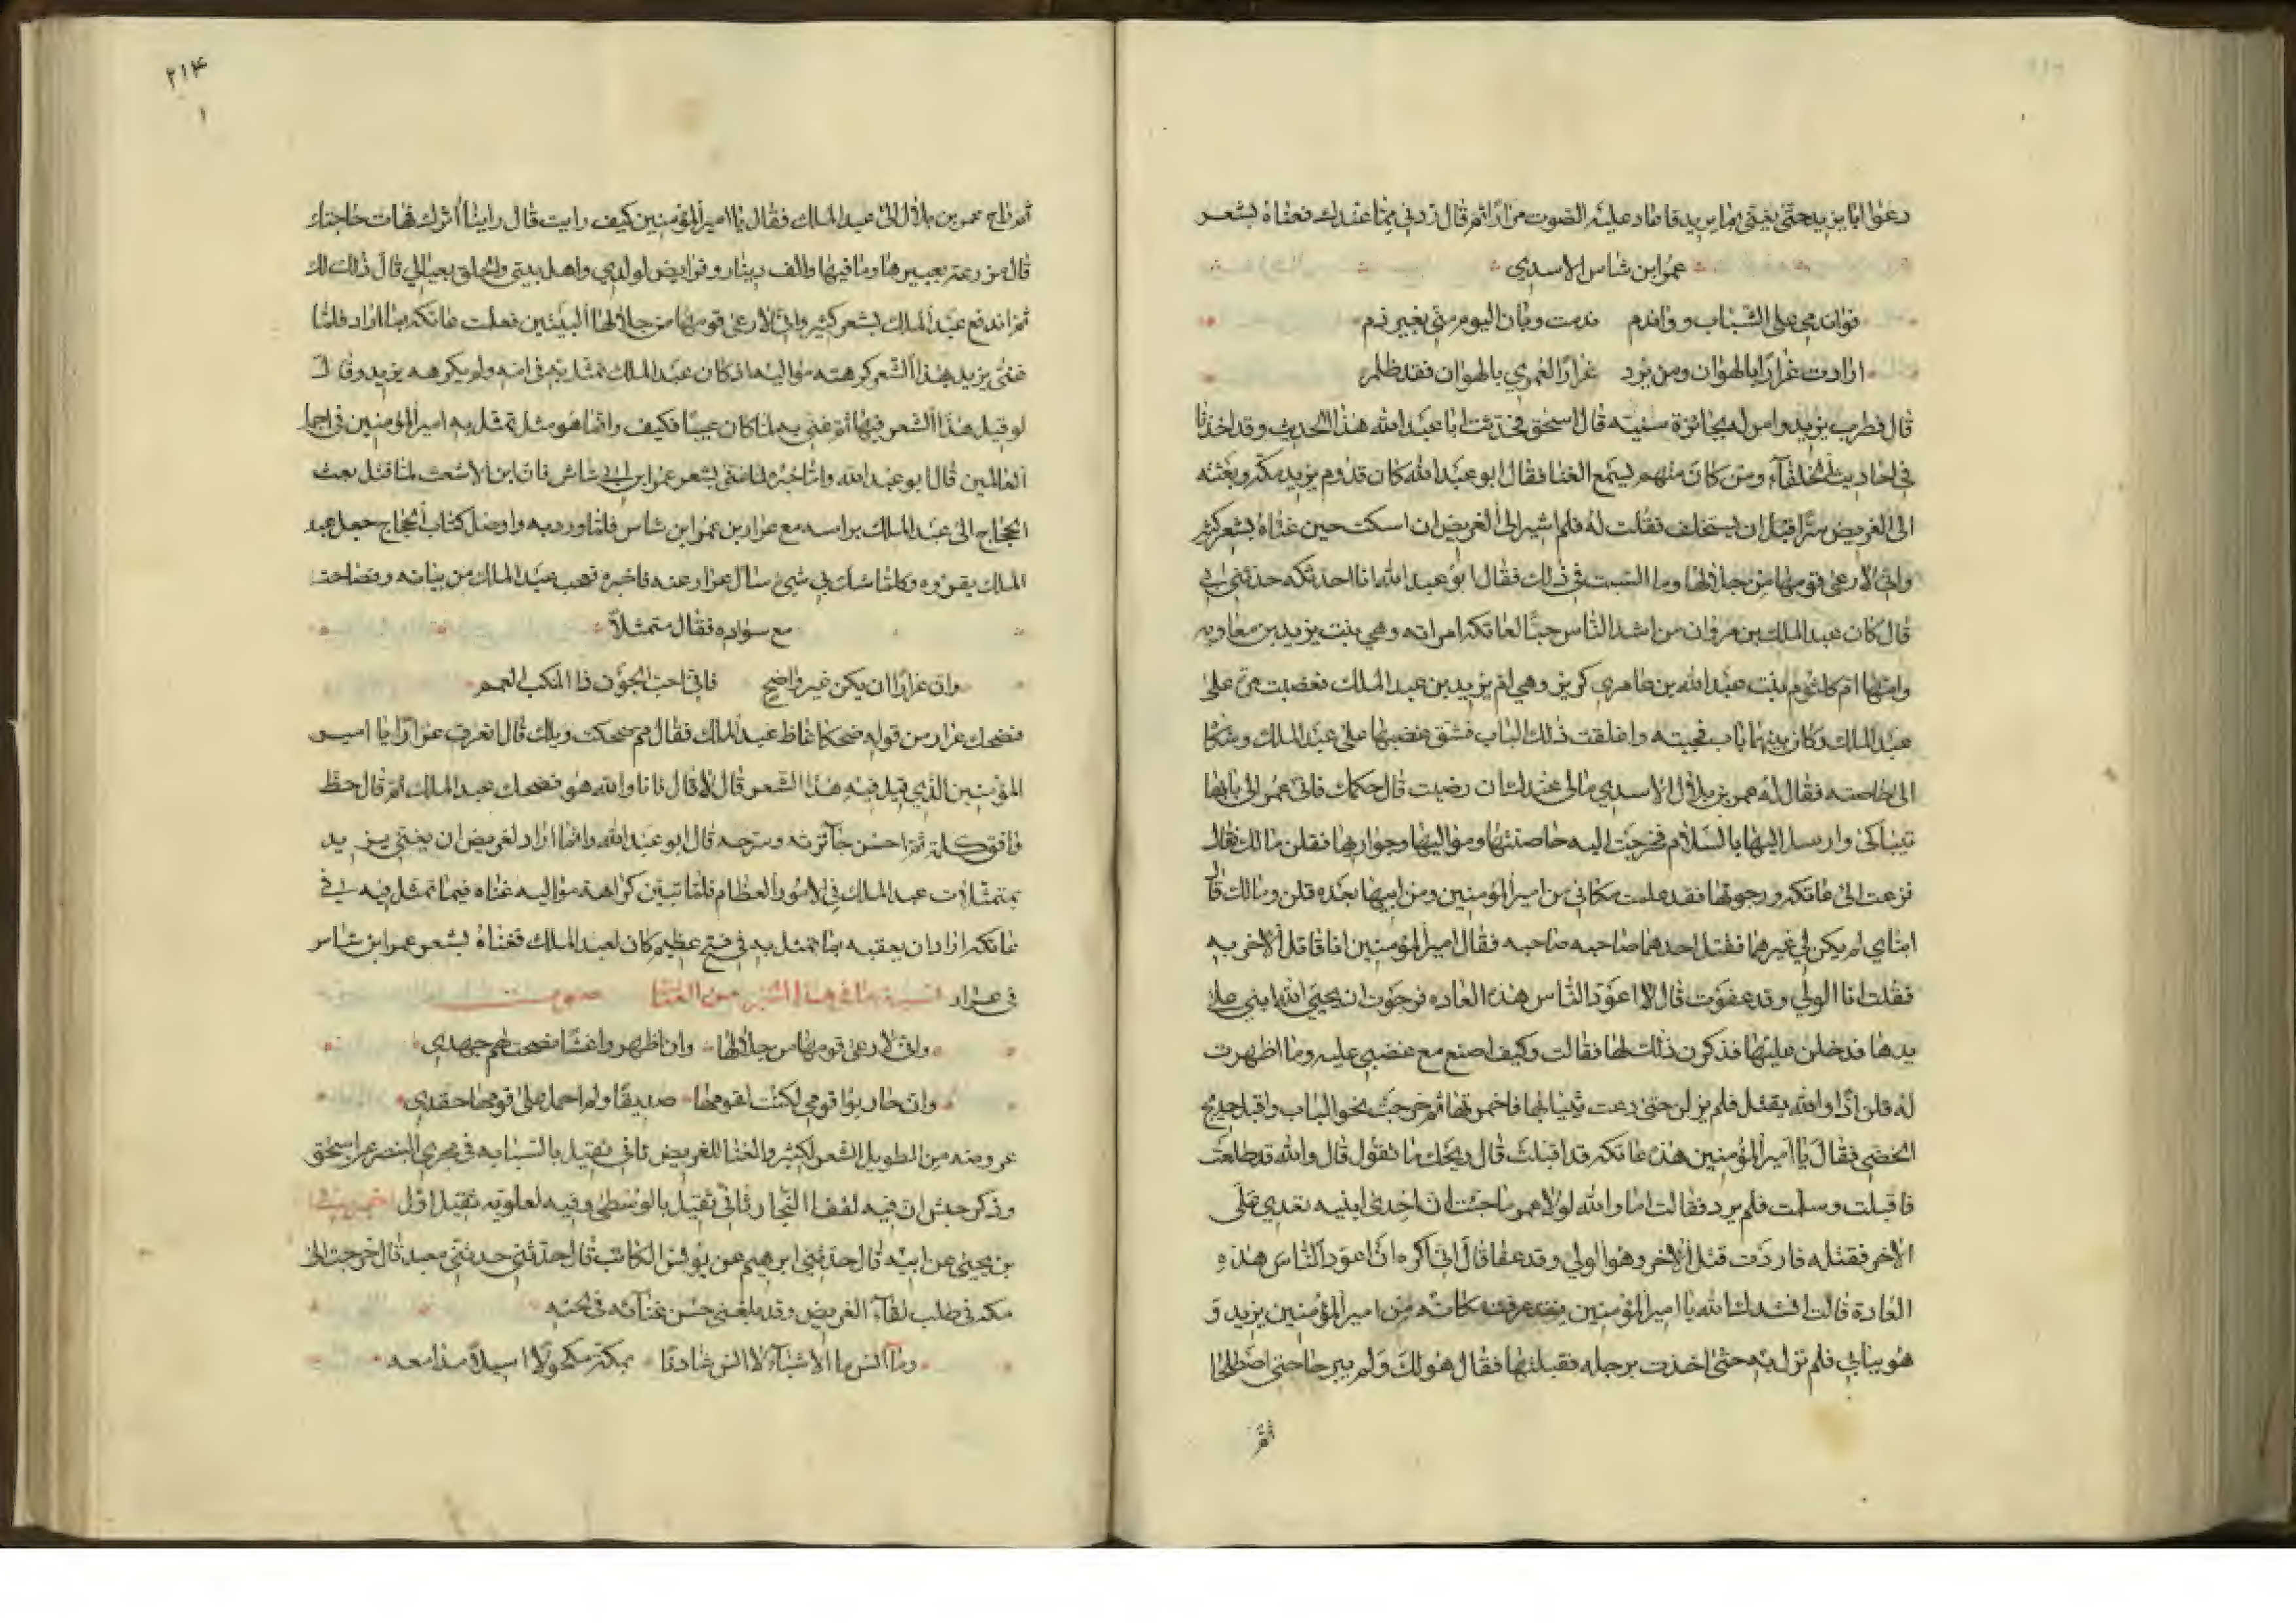 دعوا ابا يزيد حتى يغنى بما يريد فاعاد عليه الصوت مرارا ثم قال زدني مما عندك فغناه بشعر
عمرو ابن شاس الاسدي
فواندمي على الشباب وواندم ندمت وبان اليوم مني بغير ذم
ارادت عرارا بالهوان ومن يرد عرارا لعمري بالهوان فقد ظلم
قال فطرب يزيد وامر له بجائزة سنيه قال اسحق فحدثت ابا عبد الله هذا الحديث وقد اخذنا
في احاديث الخلفآء ومن كان منهم يسمع الغنا فقال ابو عبد الله كان قدوم يزيد مكه وبعثه
الى الغريض سرا قبل ان يستخلف فقلت له فلم اشير الى الغريض ان اسكت حين غناه بشعر كثير
واني لارعى قومها من جلالها وما السبب في ذلك فقال ابو عبد الله انا احدثكه حدثني ابي
قال كان عبد الملك بن مروان من اشد الناس حبا لعاتكه امراته وهي بنت يزيد بن معاويه
وامها ام كلثوم بنت عبد الله بن عامر بن كريز وهي ام يزيد بن عبد الملك فغضبت مرة على
عبد الملك وكان بينهما باب فحجبته واغلقت ذلك الباب فشق غضبها على عبد الملك وشكا
الى خاصته فقال له عمر بن بلال الاسدي مالى عندك ان رضيت قال حكمك فاتى عمر الى بابها
يتباكى وارسل اليها بالسلام فخرجت اليه حاضنتها ومواليها وجواريها فقلن مالك فقال
فزعت الى عاتكه ورجوتها فقد علمت مكاني من امير المؤمنين ومن ابيها بعده قلن ومالك قال
ابناي لم يكن لي غيرهما فقتل احدهما صاحبه فقال امير المؤمنين انا قاتل الاخر به
فقلت انا الولي وقد عفوت قال لا اعود الناس هذه العاده فرجوت ان يحيى الله ابني على
يدها فدخلن عليها فذكرن ذلك لها فقالت وكيف اصنع مع غضبي عليه وما اظهرت
له قلن اذا والله يقتل فلم يزلن حتى دعت بثيابها فاخمرتها ثم خرجت نحو الباب واقبل حديج
الخصي فقال يا امير المؤمنين هذه عاتكه قد اقبلت قال ويحك ما تقول قال والله قد طلعت
فاقبلت وسلمت فلم يرد فقالت اما والله لولا عمر ما جئت ان احدى ابنيه تعدي على
الاخر فقتله فاردت قتل الاخر وهو الولي وقد عفا قال اني اكره ان اعود الناس هذه
العادة قالت انشدك الله يا امير المؤمنين فقد عرفت مكانه من امير المؤمنين يزيد و
هو ببابي فلم تزل به حتى اخذت برجله فقبلتها فقال هو لك ولم يبرحا حتى اصطلحا
ثم
٢١٤
١
ثم راح عمر بن بلال الى عبد الملك فقال يا امير المؤمنين كيف رايت قال راينا اثرك فهات حاجتك
قال مزرعة بعبيدها وما فيها والف دينار وفرايض لولدي واهل بيتي والحاق بعيالي قال ذلك لك
ثم اندفع عبد الملك بشعر كثير واني لارعى قومها من جلالها البيتين فعلمت عاتكه ما اراد فلما
غنى يزيد بهذا الشعر كرهته مواليه اذ كان عبد الملك تمثل به في امه ولم يكرهه يزيد وقال
لو قيل هذا الشعر فيها ثم غني به لما كان عيبا فكيف وانما هو مثل تمثل به امير المؤمنين في اجمل
العالمين قال ابو عبد الله واما خبره لما غنى بشعر عمرو ابن ابي شاس فان ابن الاشعث لما قتل بعث
الحجاج الى عبد الملك براسه مع عرار بن عمرو ابن شاس فلما ورد به واوصل كتاب الحجاج جعل عبد
الملك يقروه وكلما شك في شيء سال عرار عنه فاخبره فعجب عبد الملك من بيانه وفصاحته
مع سواده فقال متمثلا
وان عرارا ان يكن غير واضح فاني احب الجون ذا المنكب العمم
فضحك عرار من قوله ضحكا غاظ عبد الملك فقال مم ضحكت ويلك قال اتعرف عرارا يا امير
المؤمنين الذي قيل فيه هذا الشعر قال لا قال فانا والله هو فضحك عبد الملك ثم قال حظ
وافق كلمة ثم احسن جآئزته وسرحه قال ابو عبد الله وانما اراد لغريض ان يغني يزيد
بمتمثلات عبد الملك في الامور العظام فلما تبين كراهة مواليه غناه فيما تمثل فيه في
عاتكه اراد ان يعقبه بما تمثل به في فتح عظيم كان لعبد الملك فغناه بشعر عمرو ابن شاس
في عرار نسبة ما في هذا الخبر من الغنا صوت
واني لارعى قومها من جلالها وان اظهروا غشا نصحت لهم جهدي
وان حاربوا قومي لكنت لقومها صديقا ولم احمل على قومها حقدي
عروضه من الطويل الشعر لكثير والغنا للغريض ثاني ثقيل بالسبابه في مجرى البنصر عن اسحق
وذكر حبش ان فيه لقفا النجار ثاني ثقيل بالوسطى وفيه لعلويه ثقيل اول اخبرني
بن يحيى عن ابيه قال حدثني ابرهيم عن يونس الكاتب قال حدثني معبد قال خرجت الى
مكه في طلب لقآء الغريض وقد بلغني حسن غنآئه في لحنه
وما انس ما الاشيآء لا انس شادنا بمكة مكحولا اسيلا مدامعه